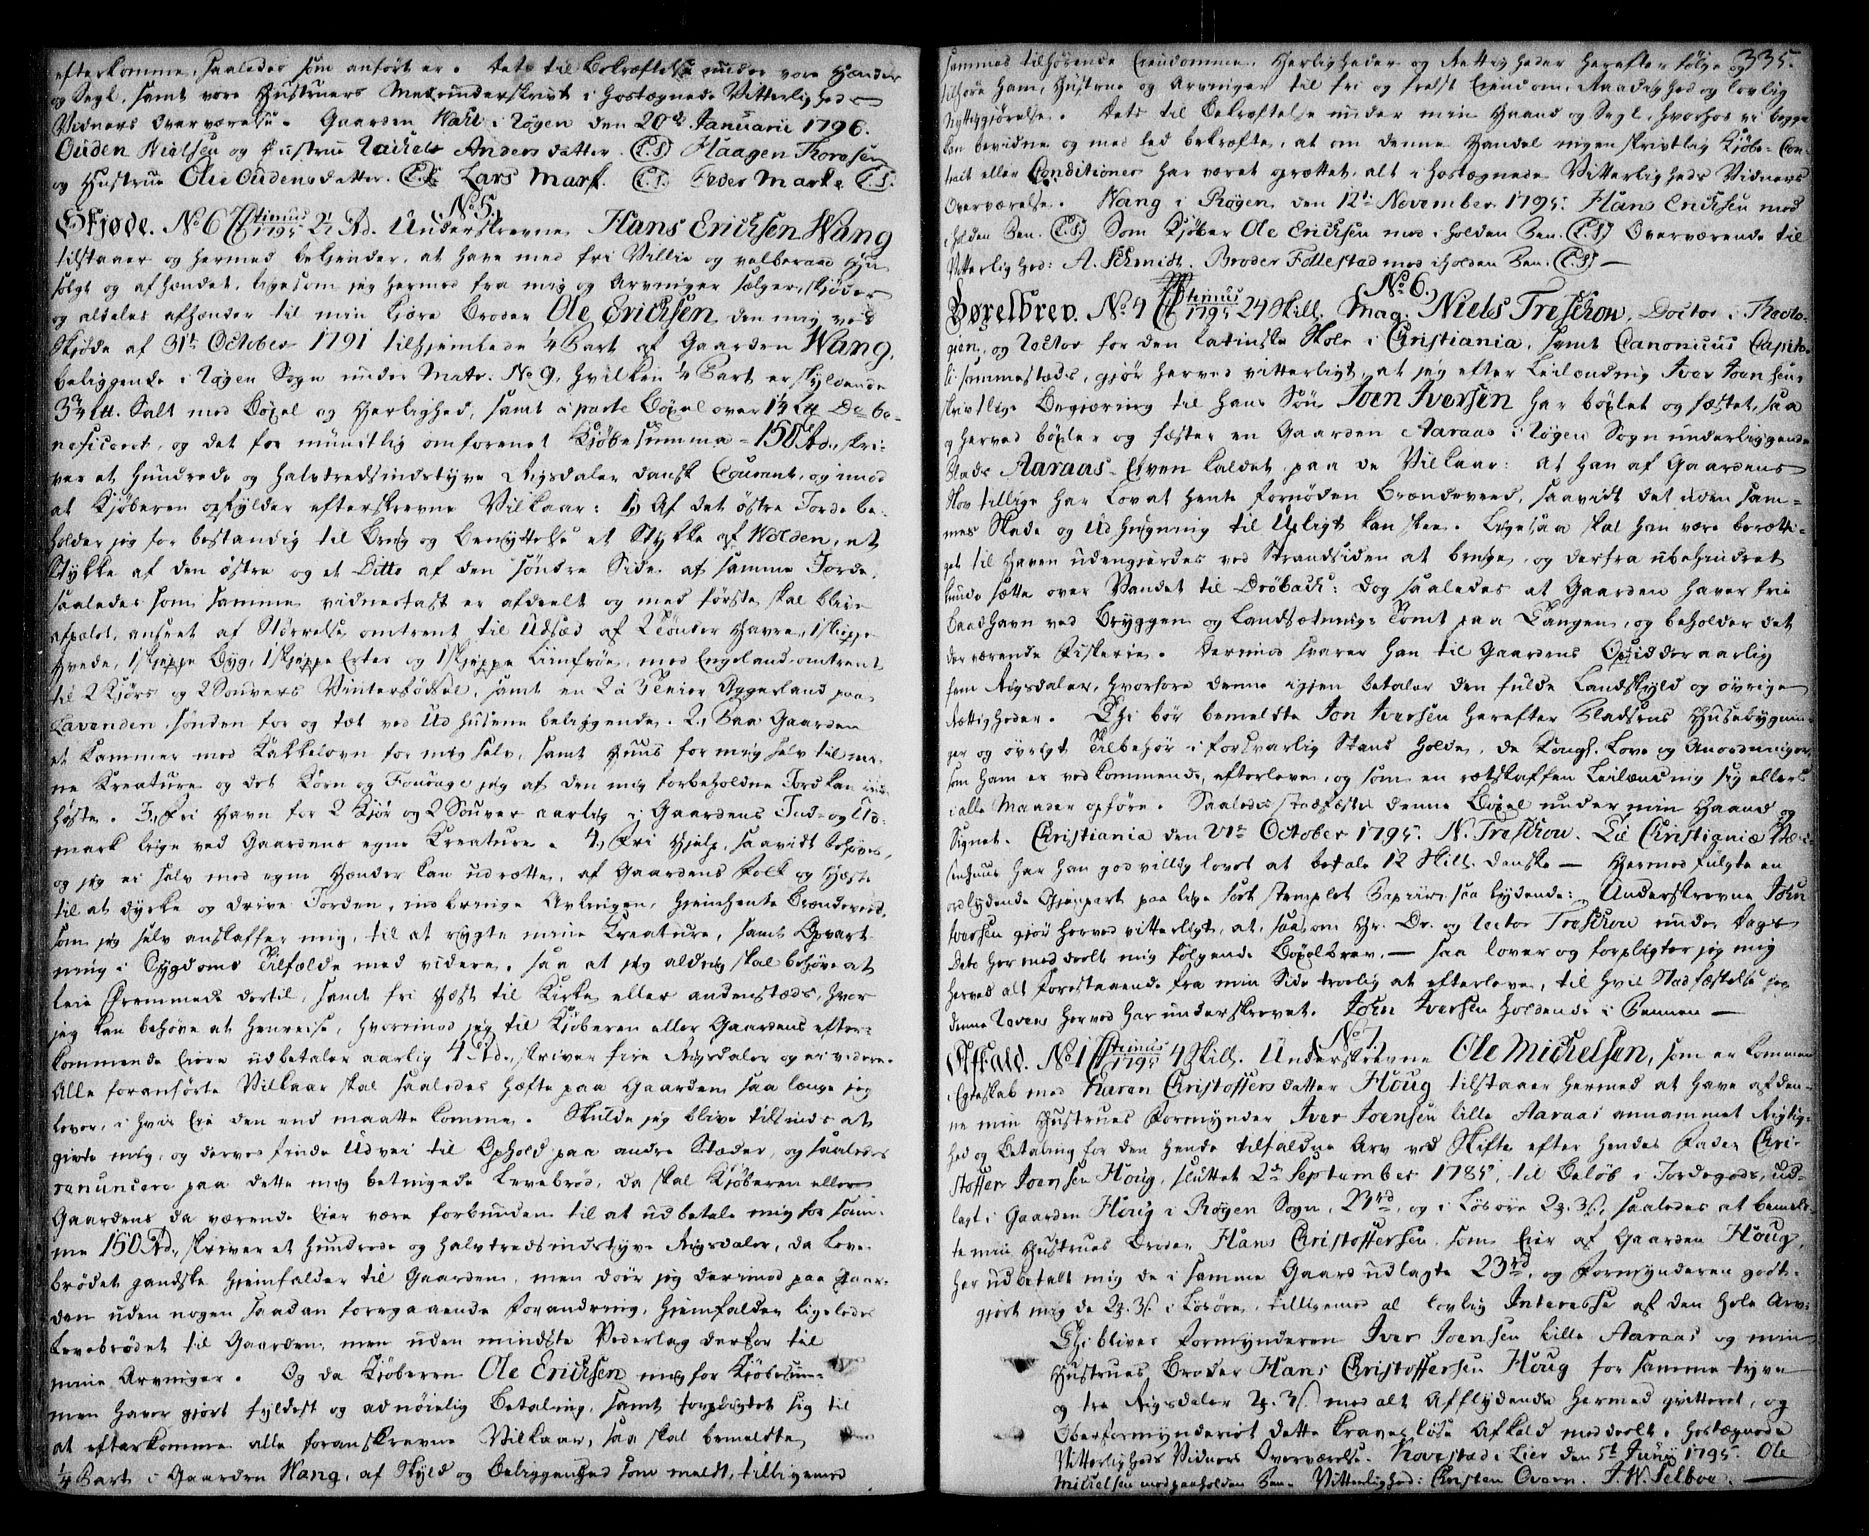 efterkomme, saaledes som anført er. Dets til Bekræftelse under vore Hænder
og Segl, samt vore Hustruers Medunderskrivt i hostegnede Vitterligheds
Vidners Overværelse. Gaarden Wahl i Røgen den 20de Januarii 1796.
Ouden Nielsen og Hustrue Rachele Anders datter. (L.S.) Haagen Thoresen
og Hustrue Olea Oudensdatter. (L.S.) Lars Mark. (L.S.) Peder Marke (L.S.)
No 5.
Skjøde. No 6 1795 21 Rd. Underskrevne Hans Ericksen Wang
tilstaaer og hermed bekjender, at have med fri Villie og velberaad Hu
solgt og afhændet, ligesom jeg hermed fra mig og Arvinger sælger, skjøder
og aldeles afhænder til min kjære Broder Ole Ericksen den mig ved
Skjøde af 31te October 1791 tilhjemlede 1/4 Part af Gaarden Wang,
beliggende i Røgen Sogn under Matr. No 9, hvilken 1/4 Part er skyldende
Salt med Bøxel og Herlighed, samt a parte Bøxel over De be-
neficeret, og det for mündtlig omforenet Kjøbesumma 150 Rd., skri-
ver et hundrede og halvtredsindstyve Rigsdaler dansk Courant, og imod
at Kjøberen opfylder efterskrevne Vilkaar: 1) Af det østre Jorde be-
holder jeg for bestandig til Brug og Benyttelse et Stykke af Volden, et
Stykke af den østre og et Ditto af den søndre Side af samme Jorde,
saaledes som samme vidnefast er afdeelt og med første skal blive
afpælet, anseet af Størrelse omtrent til Udsæd af 2 Tønder Havre, 1 Skieppe
Hvede, 1 Skjeppe Byg, 1 Skjeppe Erter og 1 Skjeppe Liinfrøe, med Engeland omtrent
til 2 Kjørs og 2 Souvers Vinterfødsel, samt en 2 a 3 Agerland paa
Lavenden sønden for og tæt ved Udhusene beliggende. 2) Paa Gaarden
et Kammer med Kakkelovn for mig selv, samt Huus for mig selv til mi-
ne Kreature og det Korn og Fourage jeg af den mig forbeholdne Jord kan ind-
høste. 3) Fri Havn for 2 Kjør og 2 Souver aarlig i Gaardens Ind- og Ud-
mark lige ved Gaardens egne Kreature. 4) Fri Hjelp, saavidt behøves,
og jeg ei selv med egne Hænder kan udrette, af Gaardens Folk og Hæste
til at dyrke og drive Jorden, indbringe Avlingen, hjemhente Brændeved,
som jeg selv anskaffer mig, til at rygte mine Kreature, samt Opvart-
ning i Sygdoms Tilfælde med videre, saa at jeg aldrig skal behøve at
leie Fremmede dertil, samt fri Hæst til Kirke eller andenstæds, hvor
jeg kan behøve at henreise, hvorimod jeg til Kjøberen eller Gaardens efter-
kommende Eiere udbetaler aarlig 4 Rd., skriver fire Rigsdaler og ei videre.
Alle foranførte Vilkaar skal saaledes hæfte paa Gaarden saa længe jeg
lever, i hvis Eie den end maatte komme. Skulde jeg blive tilsinds at
givte mig, og derved finde Udvei til Ophold paa andre Stæder, og saaledes
renuncere paa dette mig betingede Levebrød, da skal Kjøberen eller
Gaardens da værende Eier være forbunden til at udbetale mig for sam-
me 150 Rd., skriver et hundrede og halvtredsindstyve Rigsdaler, da Leve-
brødet gandske hjemfalder til Gaarden, men døer jeg derimod paa Gaar-
den uden nogen saadan foregaaende Forandring, hjemfalder ligeledes
Levebrødet til Gaarden, men uden mindste Vederlag derfor til
mine Arvinger. Og da Kjøberen Ole Ericksen mig for Kjøbesum-
men haver gjort fyldest og adnøielig Betaling, samt forpligtet sig til
at efterkomme alle foranskrevne Vilkaar, saa skal bemeldte
1/4 Part i Gaarden Wang, af Skyld og Beliggenhed som meldt, tilligemed
335.
sammes tilhørende Eiendomme, Herligheder og Rettigheder herefter følge og
tilhøre ham, Hustrue og Arvinger til fri og frelst Eiendom, Raadighed og lovlig
Nyttiggjørelse. Dets til Bekræftelse under min Haand og Segl, hvorhos vi begge
kan bevidne og med Eed bekræfte, at om denne Handel ingen skriftlig Kjøbe-Con-
tract eller Conditioner har været oprettet, alt i hostegnede Vitterligheds Vidners
Overværelse. Wang i Røgen den 12te November 1795. Hans Ericksen med
iholden Pen. (L.S.) Som Kjøber Ole Ericksen med iholden Pen. (L.S.) Overværende til
Vitterlighed: A. Schmidt. Broder Follestad med iholden Pen. (L.S.)
No 6.
Bøxelbrev. No 4 1795 24 Skill. Mag. Niels Treschow, Doctor i Theolo-
gien, og Rector for den latinske Skole i Christiania, samt Canonicus Capitu-
li sammesteds, gjør herved vitterligt, at jeg efter Leilænding Iver Joensens
skriftlige Begjæring til hans Søn Joen Iversen har bøxlet og fæstet, saa
og herved bøxler og fæster en Gaarden Aaraas i Røgen Sogn underliggende
Plads Aaraas-Eien kaldet paa de Vilkaar: at han af Gaardens
Skov tillige har Lov at hente fornøden Brændeveed, saavidt det uden sam-
mes Skade og Udhugning til Upligt kan skee. Ligesaa skal han være berætti-
get til Haven udengierdes ved Strandsiden at bruge, og derfra ubehindret
kunde sætte over Vandet til Drøbach: dog saaledes at Gaarden haver frie
Baadhavn ved Bryggen og Landsætnings Tomt paa Tangen, og beholder det
der værende Fiskerie. Derimod svarer han til Gaardens Opsidder aarlig
fem Rigsdaler, hvorfore denne igjen betaler den fulde Landskyld og øvrige
Rettigheder. Thi bør bemeldte Jon Iversen herefter Pladsens Huusebygnin-
ger og øvrigt Tilbehør i forsvarlig Stand holde, de Kongl. Love og Anordninger,
som ham er vedkommende, efterleve, og som en retskaffen Leilænding sig ellers
i alle Maader opføre. Saaledes stadfæstes denne Bøxel under min Haand og
Signet. Christiania den 21de October 1795. N. Treschow. Til Christianiæ
har han godvillig lovet at betale 12 Skill. danske — Hermed fulgte en
ordlydende Gjenpart paa lige sort stemplet Papiir, saa lydende: Underskrevne John
Iversen gjør herved vitterligt, at, saasom Hr. Dr. og Rector Treschow under Dags
Dato har meddeelt mig følgende Bøxelbrev, — saa lover og forpligter jeg mig
herved alt Forestaaende fra min Side troelig at efterleve, til hvis Stadfæstelse jeg
denne Revers herved har underskrevet. John Iversen holdende i Pennen —
No 7.
Afkald. No 1 1795 4 Skill. Underskrevne Ole Michelsen, som er kommen
i Egteskab med Karen Christoffers datter Houg tilstaaer hermed at have af den-
ne min Hustrues Formynder Iver Joensen lille Aaraas annammet Rigtig-
hed og Betaling for den hende tilfaldne Arv ved Skifte efter hendes Fader Chri-
stoffer Joensen Houg, sluttet 2de September 1785, til Beløb i Jordegods, ud-
lagt i Gaarden Houg i Røgen Sogn, 23 rd, og i Løsøre 2 . 3 ß, saaledes at bemeld-
te min Hustrues Broder Hans Christoffersen som Eier af Gaarden Houg,
har udbetalt mig de i samme Gaard udlagte 23 rd, og Formynderen godt-
gjort mig de 2 . 3 ß i Løsøre, tilligemed al lovlig Interesse af den hele Arv.
Thi bliver Formynderen Iver Joensen lille Aaraas og min
Hustrues Broder Hans Christoffersen Houg for samme tyve
og tre Rigsdaler 2 . 3 ß med alt Afflydende hermed qvitteret, og
Overformynderiet dette kravesløse Afkald meddeelt i hostegnede
Vitterligheds Vidners Overværelse. Hovestad i Lier den 5t Junij 1795. Ole
Michelsen med paaholden Pen. Vitterlighed: Christen Overn. J. W. Selboe.